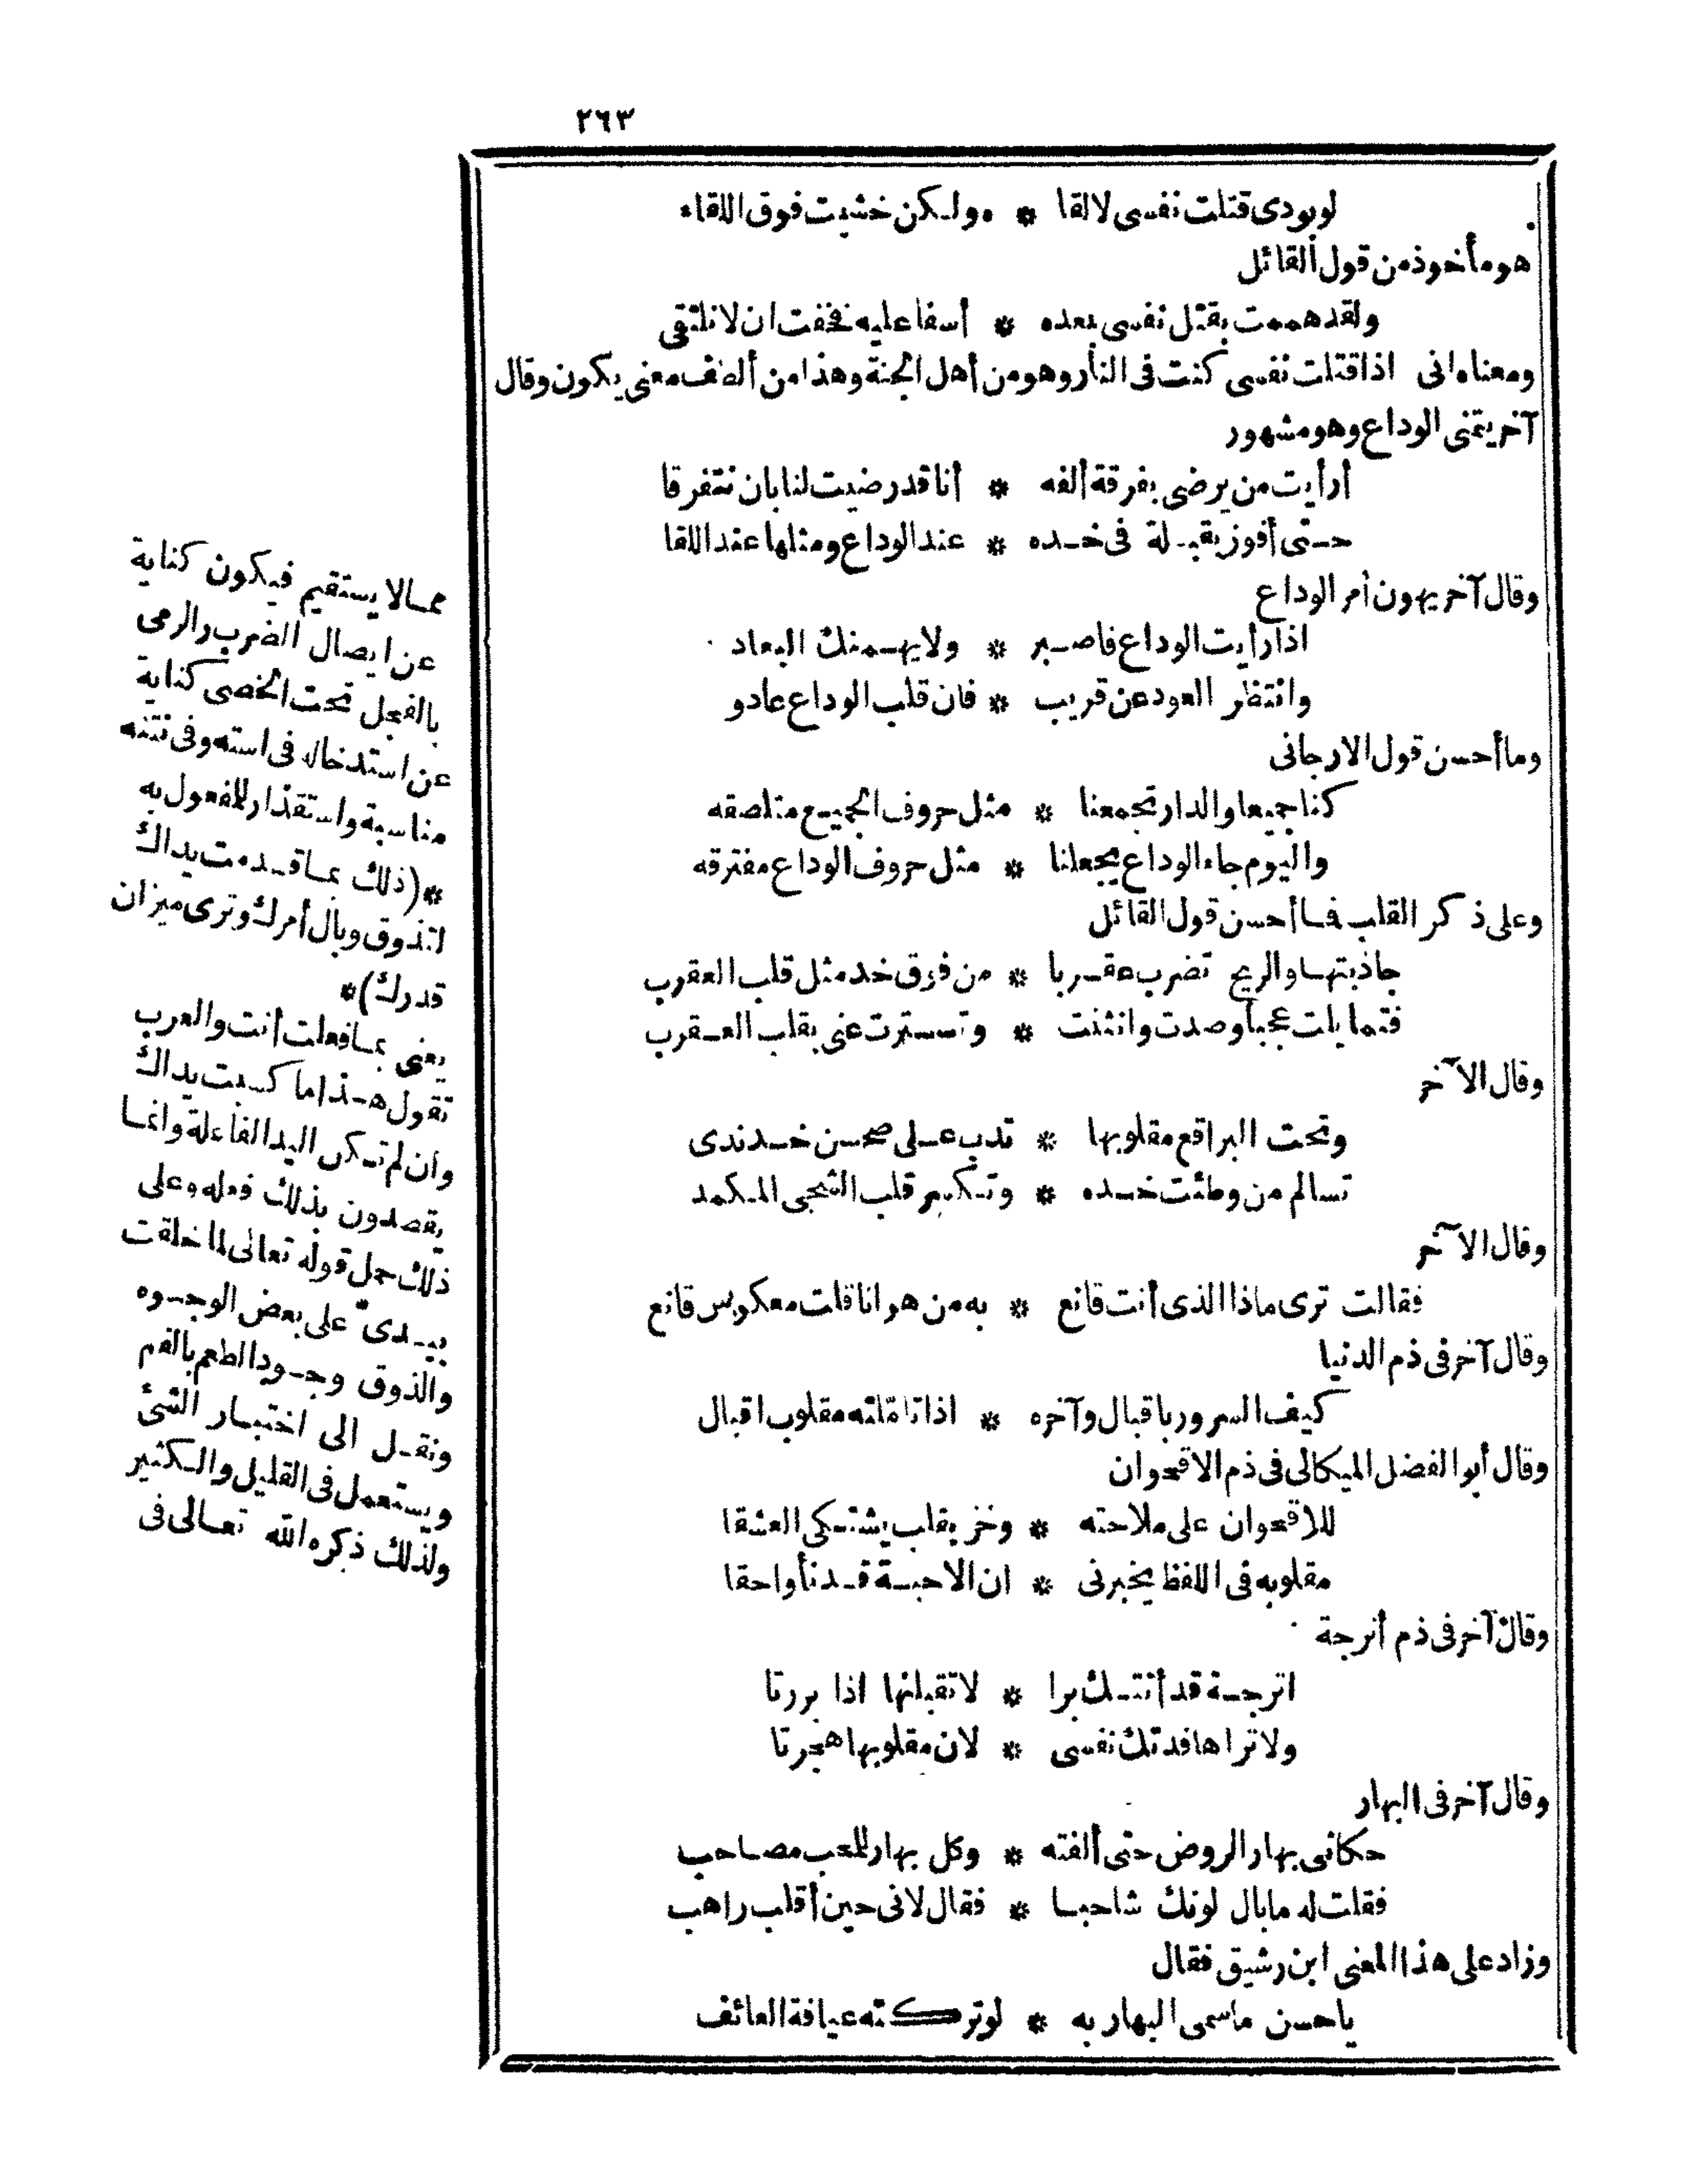 ٢٦٣
لو بودى قتلت نفسى لالقا * ه ولكن خشيت فوق اللقاء
هو مأخوذ من قول القائل
ولقد هممت بقتل نفسى بعده * أسفا عليه فخفت ان لا نلتقى
ومعناه انى اذا قتلت نفسى كنت فى النار وهو من أهل الجنة وهذا من ألطف معنى يكون وقال
آخر يتمنى الوداع وهو مشهور
أرأيت من يرضى بفرقة ألفه * أنا قد رضيت لنا بان نتفرقا
حتى أفوز بقبلة فى خده * عند الوداع ومثلها عند اللقا
وقال آخر يهون أمر الوداع
اذا رأيت الوداع فاصبر * ولا يهمنك البعاد
وانتظر العود عن قريب * فان قلب الوداع عادو
وما أحسن قول الارجانى
كنا جميعا والدار تجمعنا * مثل حروف الجميع متلصقه
واليوم جاء الوداع يجعلنا * مثل حروف الوداع مفترقه
وعلى ذكر القلب فما أحسن قول القائل
جاذبتها والريح تضرب عقربا * من فوق خد مثل قلب العقرب
فتمايلت عجبا وصدت وانثنت * وتسترت عنى بقلب العقرب
وقال الآخر
وتحت البراقع مقلوبها * تدب على صحن خد ندى
تسالم من وطئت خده * وتكسر قلب الشجى المكمد
وقال الآخر
فقالت ترى ماذا الذى أنت قانع * به من هو انا قلت معكوس قانع
وقال آخر فى ذم الدنيا
كيف السرور باقبال وآخره * اذا تأملته مقلوب اقبال
وقال أبو الفضل الميكالى فى ذم الاقحوان
للاقحوان على ملاحته * وخز بقلب يشتكى العشقا
مقلوبه فى اللفظ يخبرنى * ان الاحبة قد نأوا حقا
وقال آخر فى ذم أترجة
اترجة قد أتتك برا * لا تقبلنها اذا بررتا
ولا تراها فدتك نفسى * لان مقلوبها هجرتا
وقال آخر فى البهار
حكانى بهار الروض حتى ألفته * وكل بهار للمحب مصاحب
فقلت له ما بال لونك شاحبا * فقال لانى حين أقلب راهب
وزاد على هذا المعنى ابن رشيق فقال
يا حسن ما سمى البهار به * لو تركته عيافة العائف
مما لا يستقيم فيكون كناية
عن ايصال الضرب والرمى
بالفجل تحت الخصى كناية
عن استدخاله فى استه وفى نتنه
مناسبة واستقذار للمفعول به
*(ذلك بما قدمت يداك
لتذوق وبال أمرك وترى ميزان
قدرك)*
يعنى بما فعلت أنت والعرب
تقول هذا ما كسبت يداك
وان لم تكن اليد الفاعلة وانما
يقصدون بذلك فعله وعلى
ذلك حمل قوله تعالى لما خلقت
بيدىّ على بعض الوجوه
والذوق وجود الطعم بالفم
ونقل الى اختبار الشئ
ويستعمل فى القليل والكثير
ولذلك ذكره الله تعالى فى